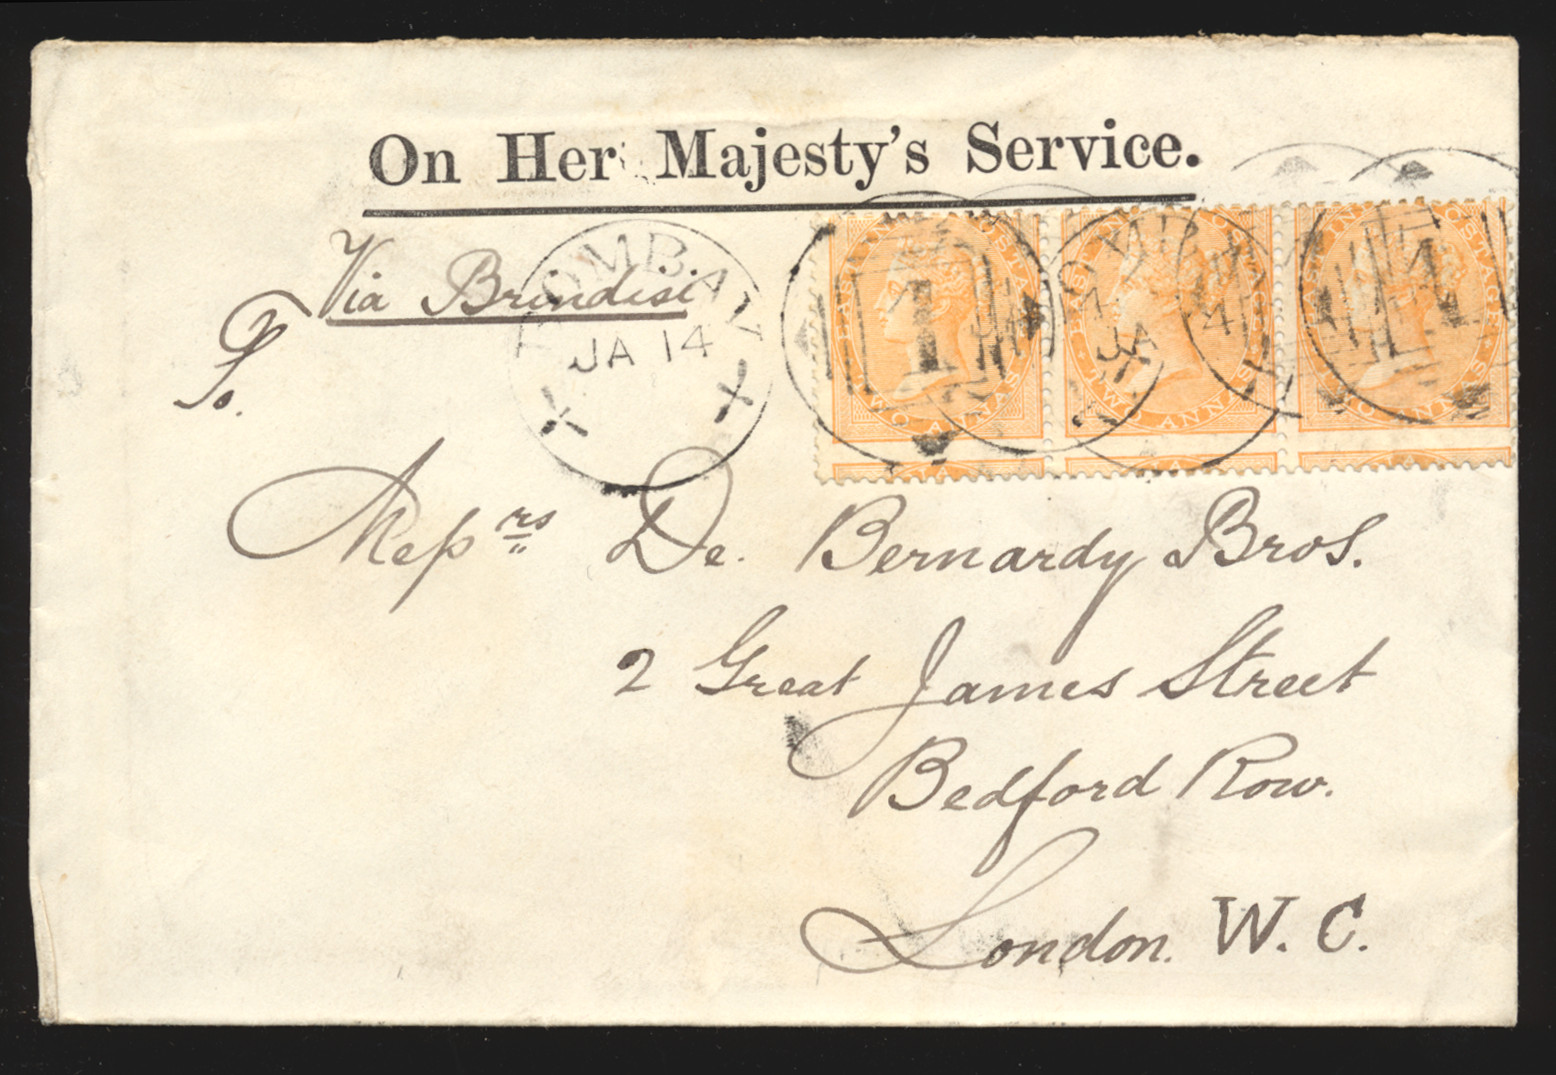 On Her Majesty's Service.
Via Brindisi
BOMBAY
JA 14
To.
TWO ANNAS
TWO ANNAS
Messrs De. Bernardy Bros.
2 Great James Street
Bedford Row.
London. W. C.